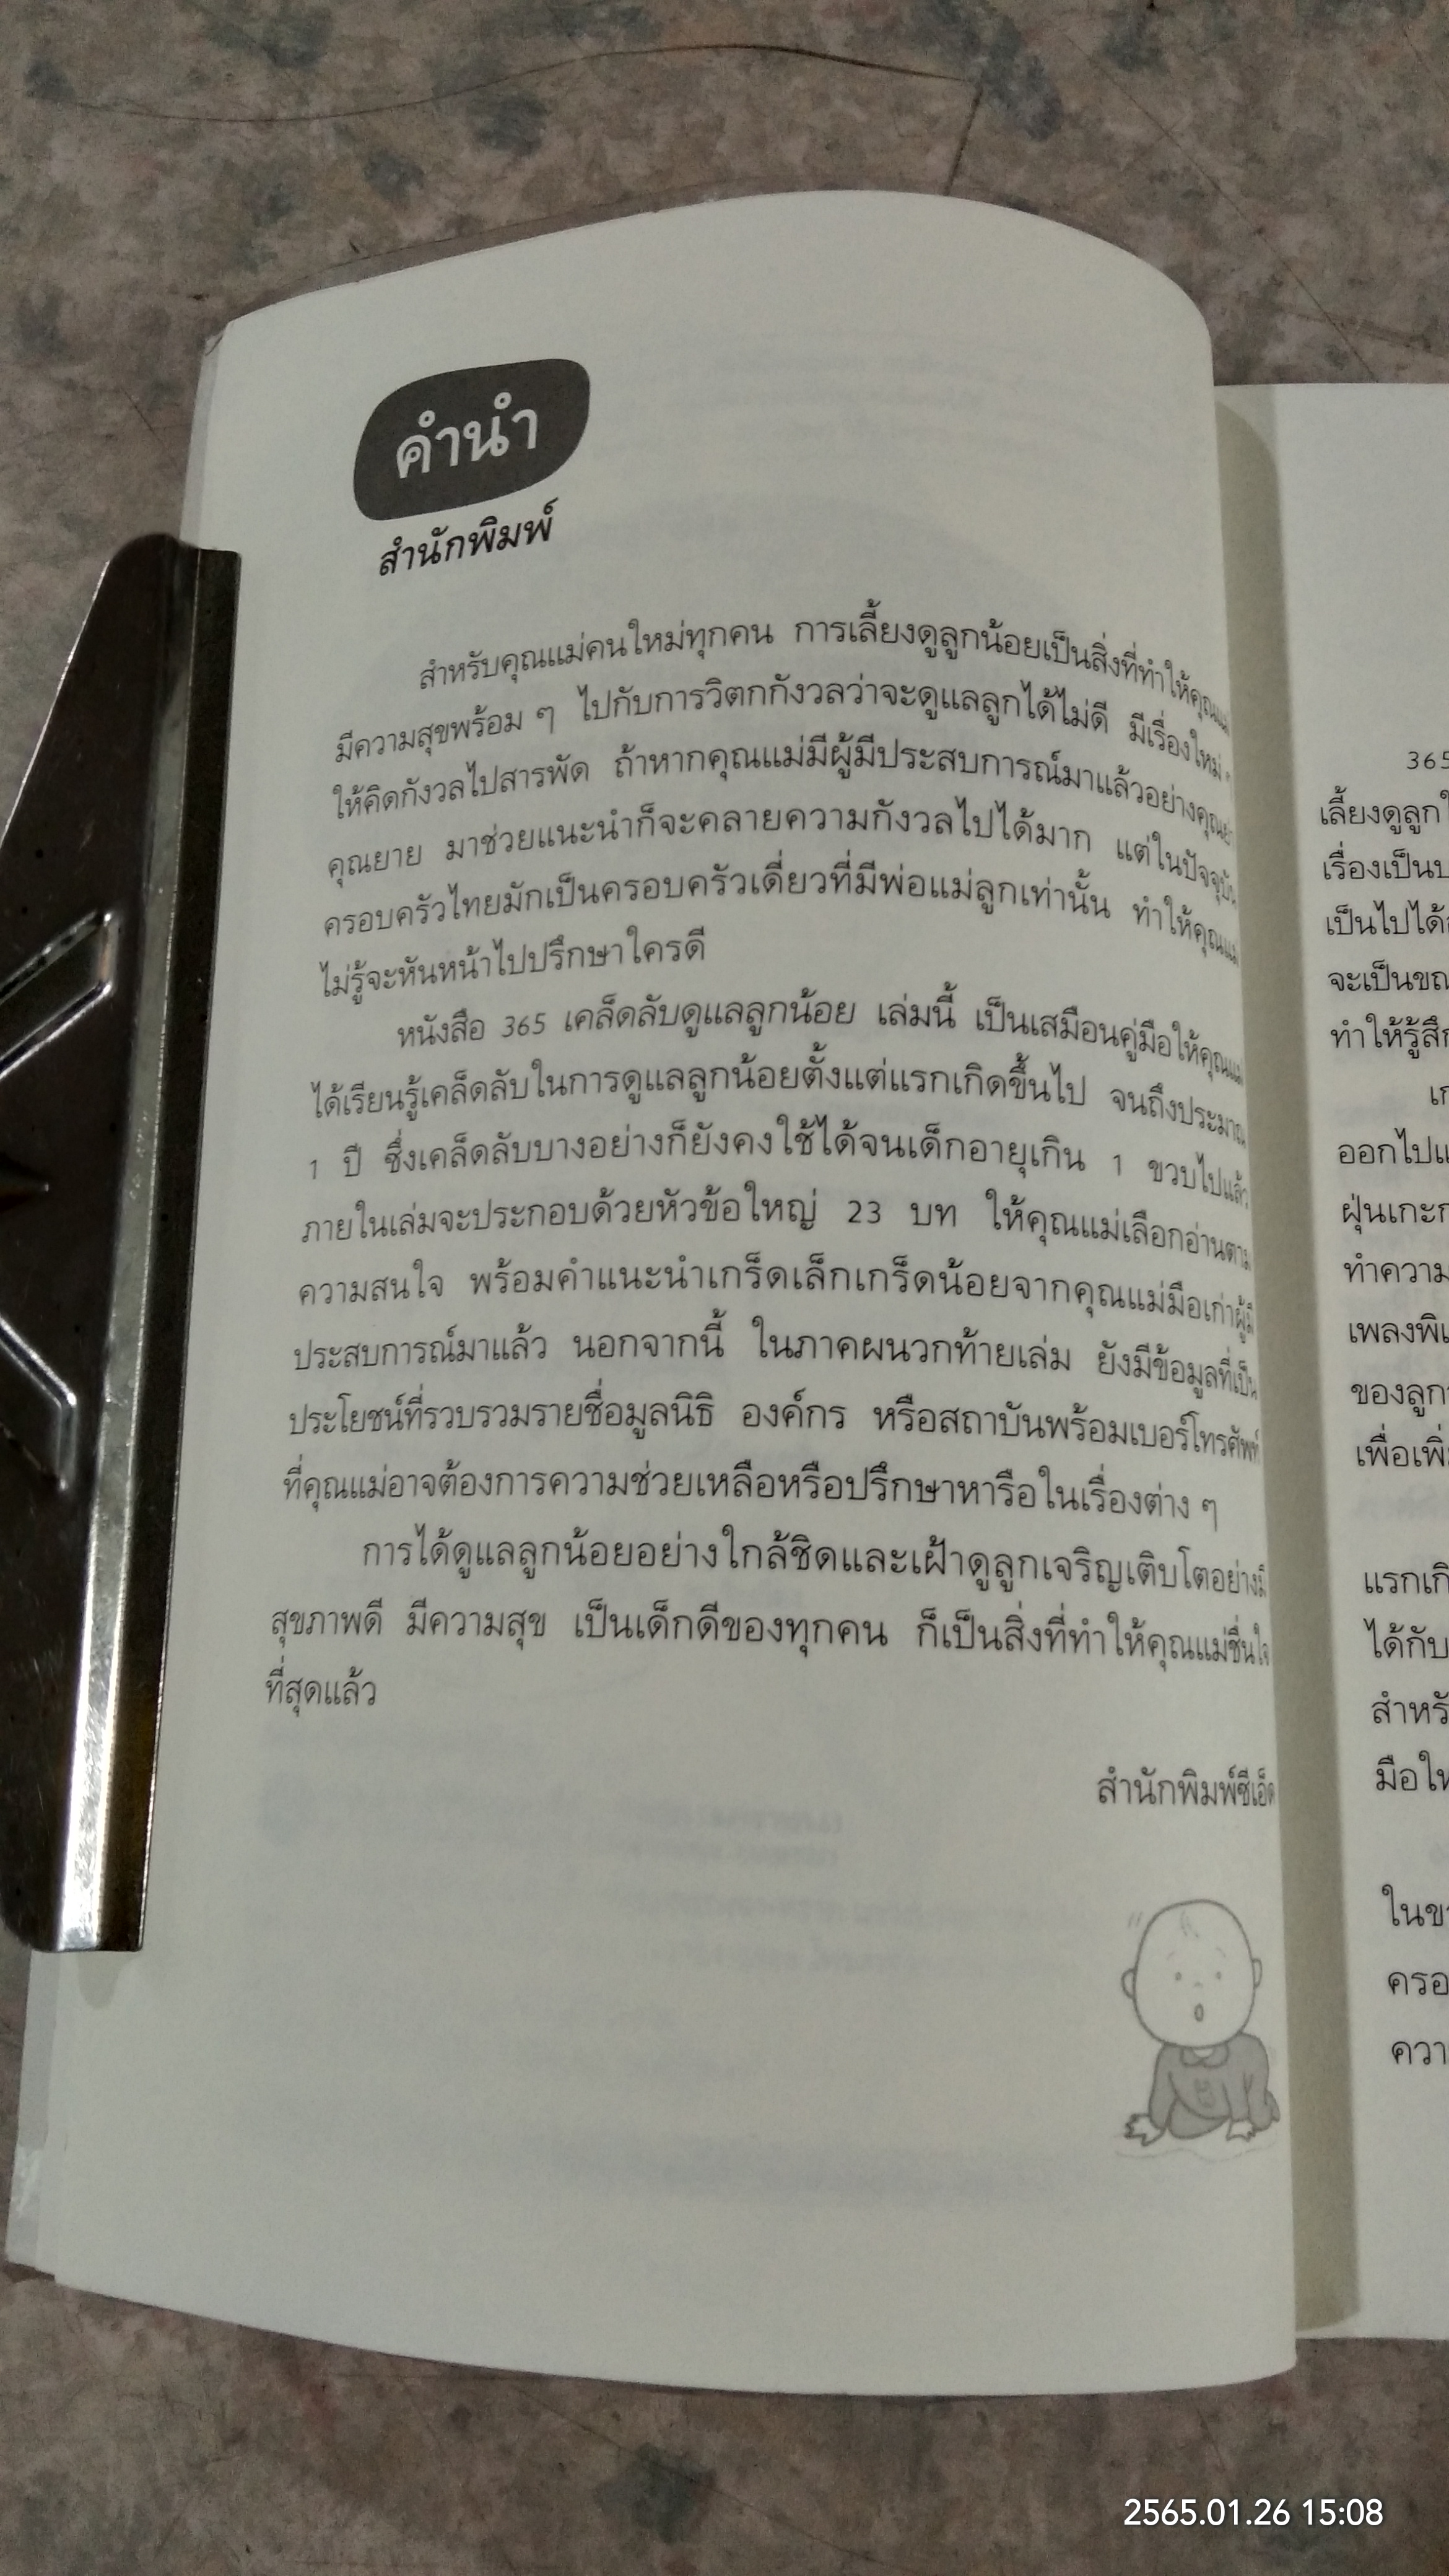 คำนำ
สำนักพิมพ์
สำหรับคุณแม่คนใหม่ทุกคน การเลี้ยงดูลูกน้อยเป็นสิ่งที่ทำให้คุณแม่
มีความสุขพร้อม ๆ ไปกับการวิตกกังวลว่าจะดูแลลูกได้ไม่ดี มีเรื่องใหม่
ให้คิดกังวลไปสารพัด ถ้าหากคุณแม่มีผู้มีประสบการณ์มาแล้วอย่าง
คุณยาย มาช่วยแนะนำก็จะคลายความกังวลไปได้มาก แต่ในปัจจุบัน
ครอบครัวไทยมักเป็นครอบครัวเดี่ยวที่มีพ่อแม่ลูกเท่านั้น ทำให้คุณแม่
ไม่รู้จะหันหน้าไปปรึกษาใครดี
หนังสือ 365 เคล็ดลับดูแลลูกน้อย เล่มนี้ เป็นเสมือนคู่มือให้คุณแม่
ได้เรียนรู้เคล็ดลับในการดูแลลูกน้อยตั้งแต่แรกเกิดขึ้นไป จนถึงประมาณ
1 ปี ซึ่งเคล็ดลับบางอย่างก็ยังคงใช้ได้จนเด็กอายุเกิน 1 ขวบไปแล้ว
ภายในเล่มจะประกอบด้วยหัวข้อใหญ่ 23 บท ให้คุณแม่เลือกอ่านตาม
ความสนใจ พร้อมคำแนะนำเกร็ดเล็กเกร็ดน้อยจากคุณแม่มือเก่าผู้มี
ประสบการณ์มาแล้ว นอกจากนี้ ในภาคผนวกท้ายเล่ม ยังมีข้อมูลที่เป็น
ประโยชน์ที่รวบรวมรายชื่อมูลนิธิ องค์กร หรือสถาบันพร้อมเบอร์โทรศัพท์
ที่คุณแม่อาจต้องการความช่วยเหลือหรือปรึกษาหารือในเรื่องต่าง ๆ
การได้ดูแลลูกน้อยอย่างใกล้ชิดและเฝ้าดูลูกเจริญเติบโตอย่างมี
สุขภาพดี มีความสุข เป็นเด็กดีของทุกคน ก็เป็นสิ่งที่ทำให้คุณแม่ชื่นใจ
ที่สุดแล้ว
สำนักพิมพ์ซีเอ็ด
365
เลี้ยงดูลูก
เรื่องเป็น
เป็นไปได้
จะเป็นขณ
ทำให้รู้สึก
ออกไป
ฝุ่นเกาะ
ทำความ
เพลง
ของลูก
เพื่อเพิ่
แรกเกิ
ได้กับ
สำหรั
มือให
ในข
ครอ
ควา
2565.01.26 15:08